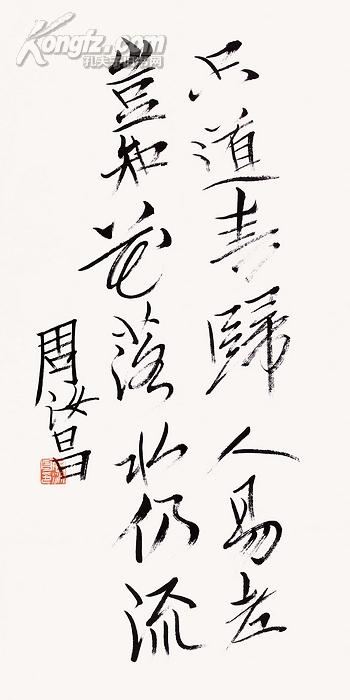 Kongfz.com
孔夫子旧书网
只道春歸人易老
豈知花落水仍流
周汝昌